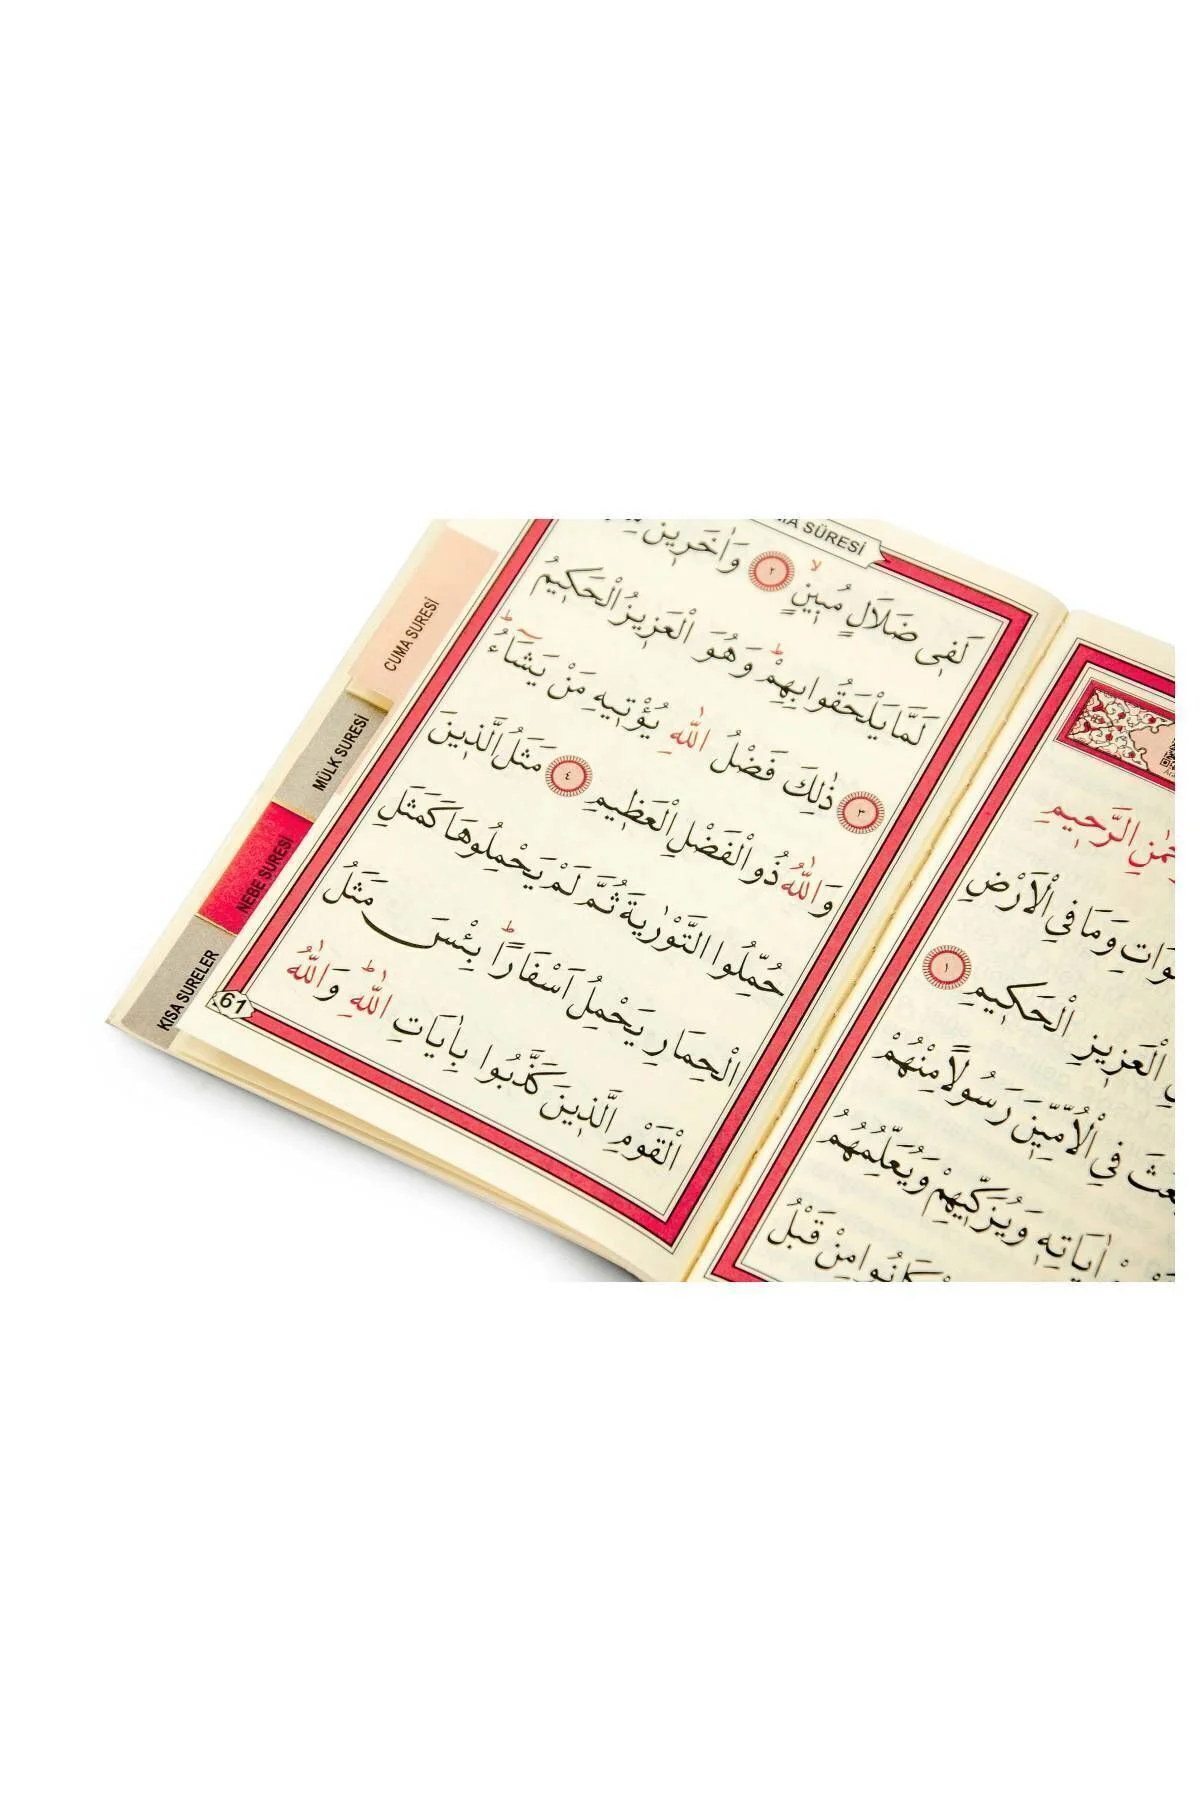 حْمٰنِ الرَّحٖيمِ
وَاتِ وَمَا فِي الْاَرْضِ
الْعَزٖيزِ الْحَكٖيمِ ١
فِي الْاُمِّيّٖنَ رَسُولًا مِنْهُمْ
اٰيَاتِهٖ وَيُزَكّٖيهِمْ وَيُعَلِّمُهُمُ
كَانُوا مِنْ قَبْلُ
SÛRESİ
لَفٖي ضَلَالٍ مُبٖينٍ لا ٢ وَاٰخَرٖينَ
لَمَّا يَلْحَقُوا بِهِمْ ط وَهُوَ الْعَزٖيزُ الْحَكٖيمُ
٣ ذٰلِكَ فَضْلُ اللّٰهِ يُؤْتٖيهِ مَنْ يَشَٓاءُ ط
وَاللّٰهُ ذُو الْفَضْلِ الْعَظٖيمِ ٤ مَثَلُ الَّذٖينَ
حُمِّلُوا التَّوْرٰيةَ ثُمَّ لَمْ يَحْمِلُوهَا كَمَثَلِ
الْحِمَارِ يَحْمِلُ اَسْفَارًا ط بِئْسَ مَثَلُ
الْقَوْمِ الَّذٖينَ كَذَّبُوا بِاٰيَاتِ اللّٰهِ ط وَاللّٰهُ
61
CUMA SURESİ
MÜLK SURESİ
NEBE SURESİ
KISA SURELER